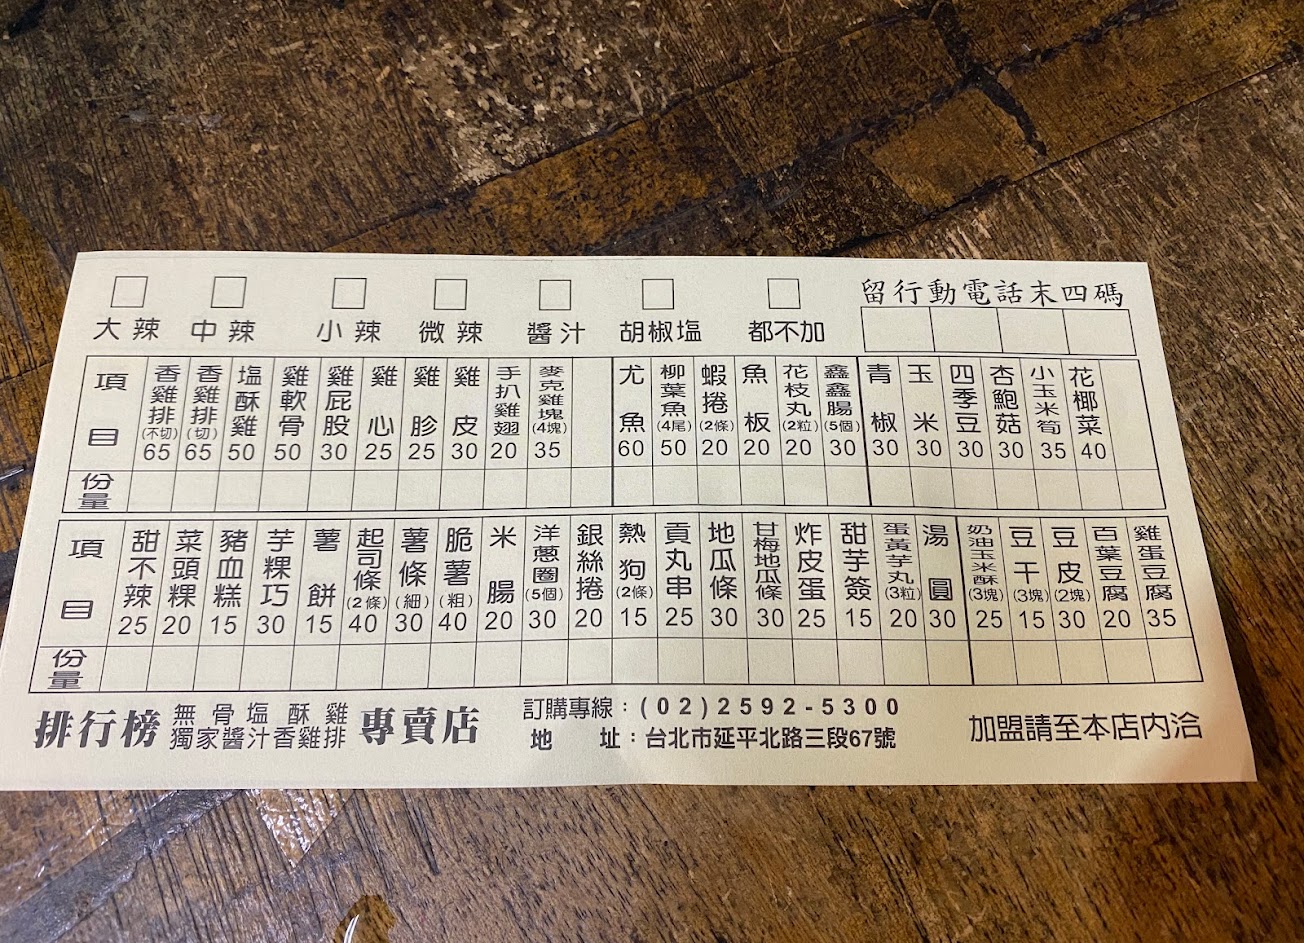 大辣 中辣 小辣 微辣 醬汁 胡椒塩 都不加
留行動電話末四碼
項目 香雞排(不切)65 香雞排(切)65 塩酥雞50 雞軟骨50 雞屁股30 雞心25 雞胗25 雞皮30 手扒雞翅20 麥克雞塊(4塊)35 尤魚60 柳葉魚(4尾)50 蝦捲(2條)20 魚板20 花枝丸(2粒)20 鑫鑫腸(5個)30 青椒30 玉米30 四季豆30 杏鮑菇30 小玉米筍35 花椰菜40
份量
項目 甜不辣25 菜頭粿20 豬血糕15 芋粿巧30 薯餅15 起司條(2條)40 薯條(細)30 脆薯(粗)40 米腸20 洋蔥圈(5個)30 銀絲捲20 熱狗(2條)15 貢丸串25 地瓜條30 甘梅地瓜條30 炸皮蛋25 甜芋簽15 蛋黃芋丸(3粒)20 湯圓30 奶油玉米酥(3塊)25 豆干(3塊)15 豆皮(2塊)30 百葉豆腐20 雞蛋豆腐35
份量
排行榜 無骨塩酥雞 獨家醬汁香雞排 專賣店
訂購專線：(02)2592-5300
地址：台北市延平北路三段67號
加盟請至本店內洽